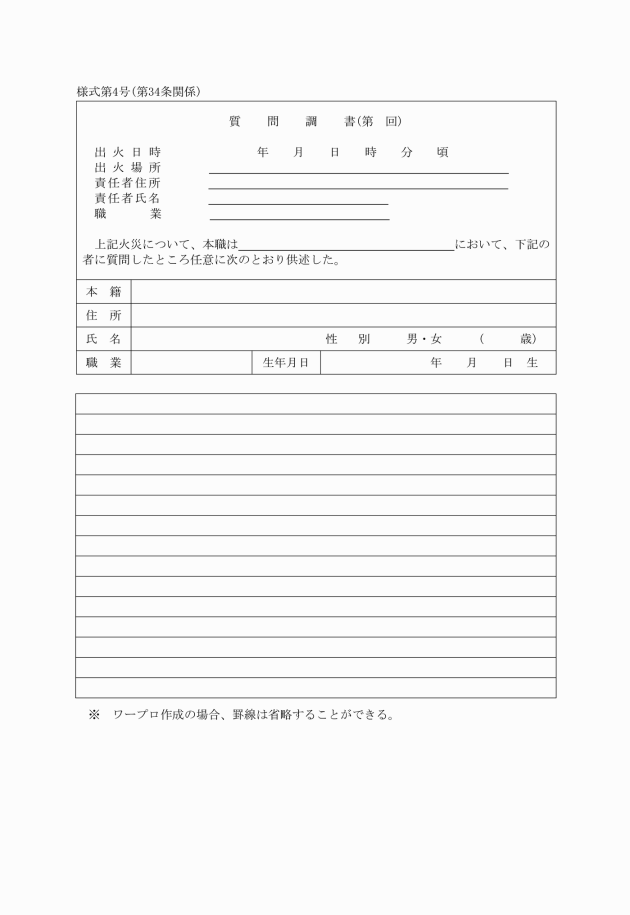 様式第4号(第34条関係)
質　問　調　書(第　回)
出火日時　年　月　日　時　分　頃
出火場所
責任者住所
責任者氏名
職　業
上記火災について、本職は　において、下記の
者に質問したところ任意に次のとおり供述した。
本　籍
住　所
氏　名　性　別　男・女　(　歳)
職　業　生年月日　年　月　日　生
※　ワープロ作成の場合、罫線は省略することができる。